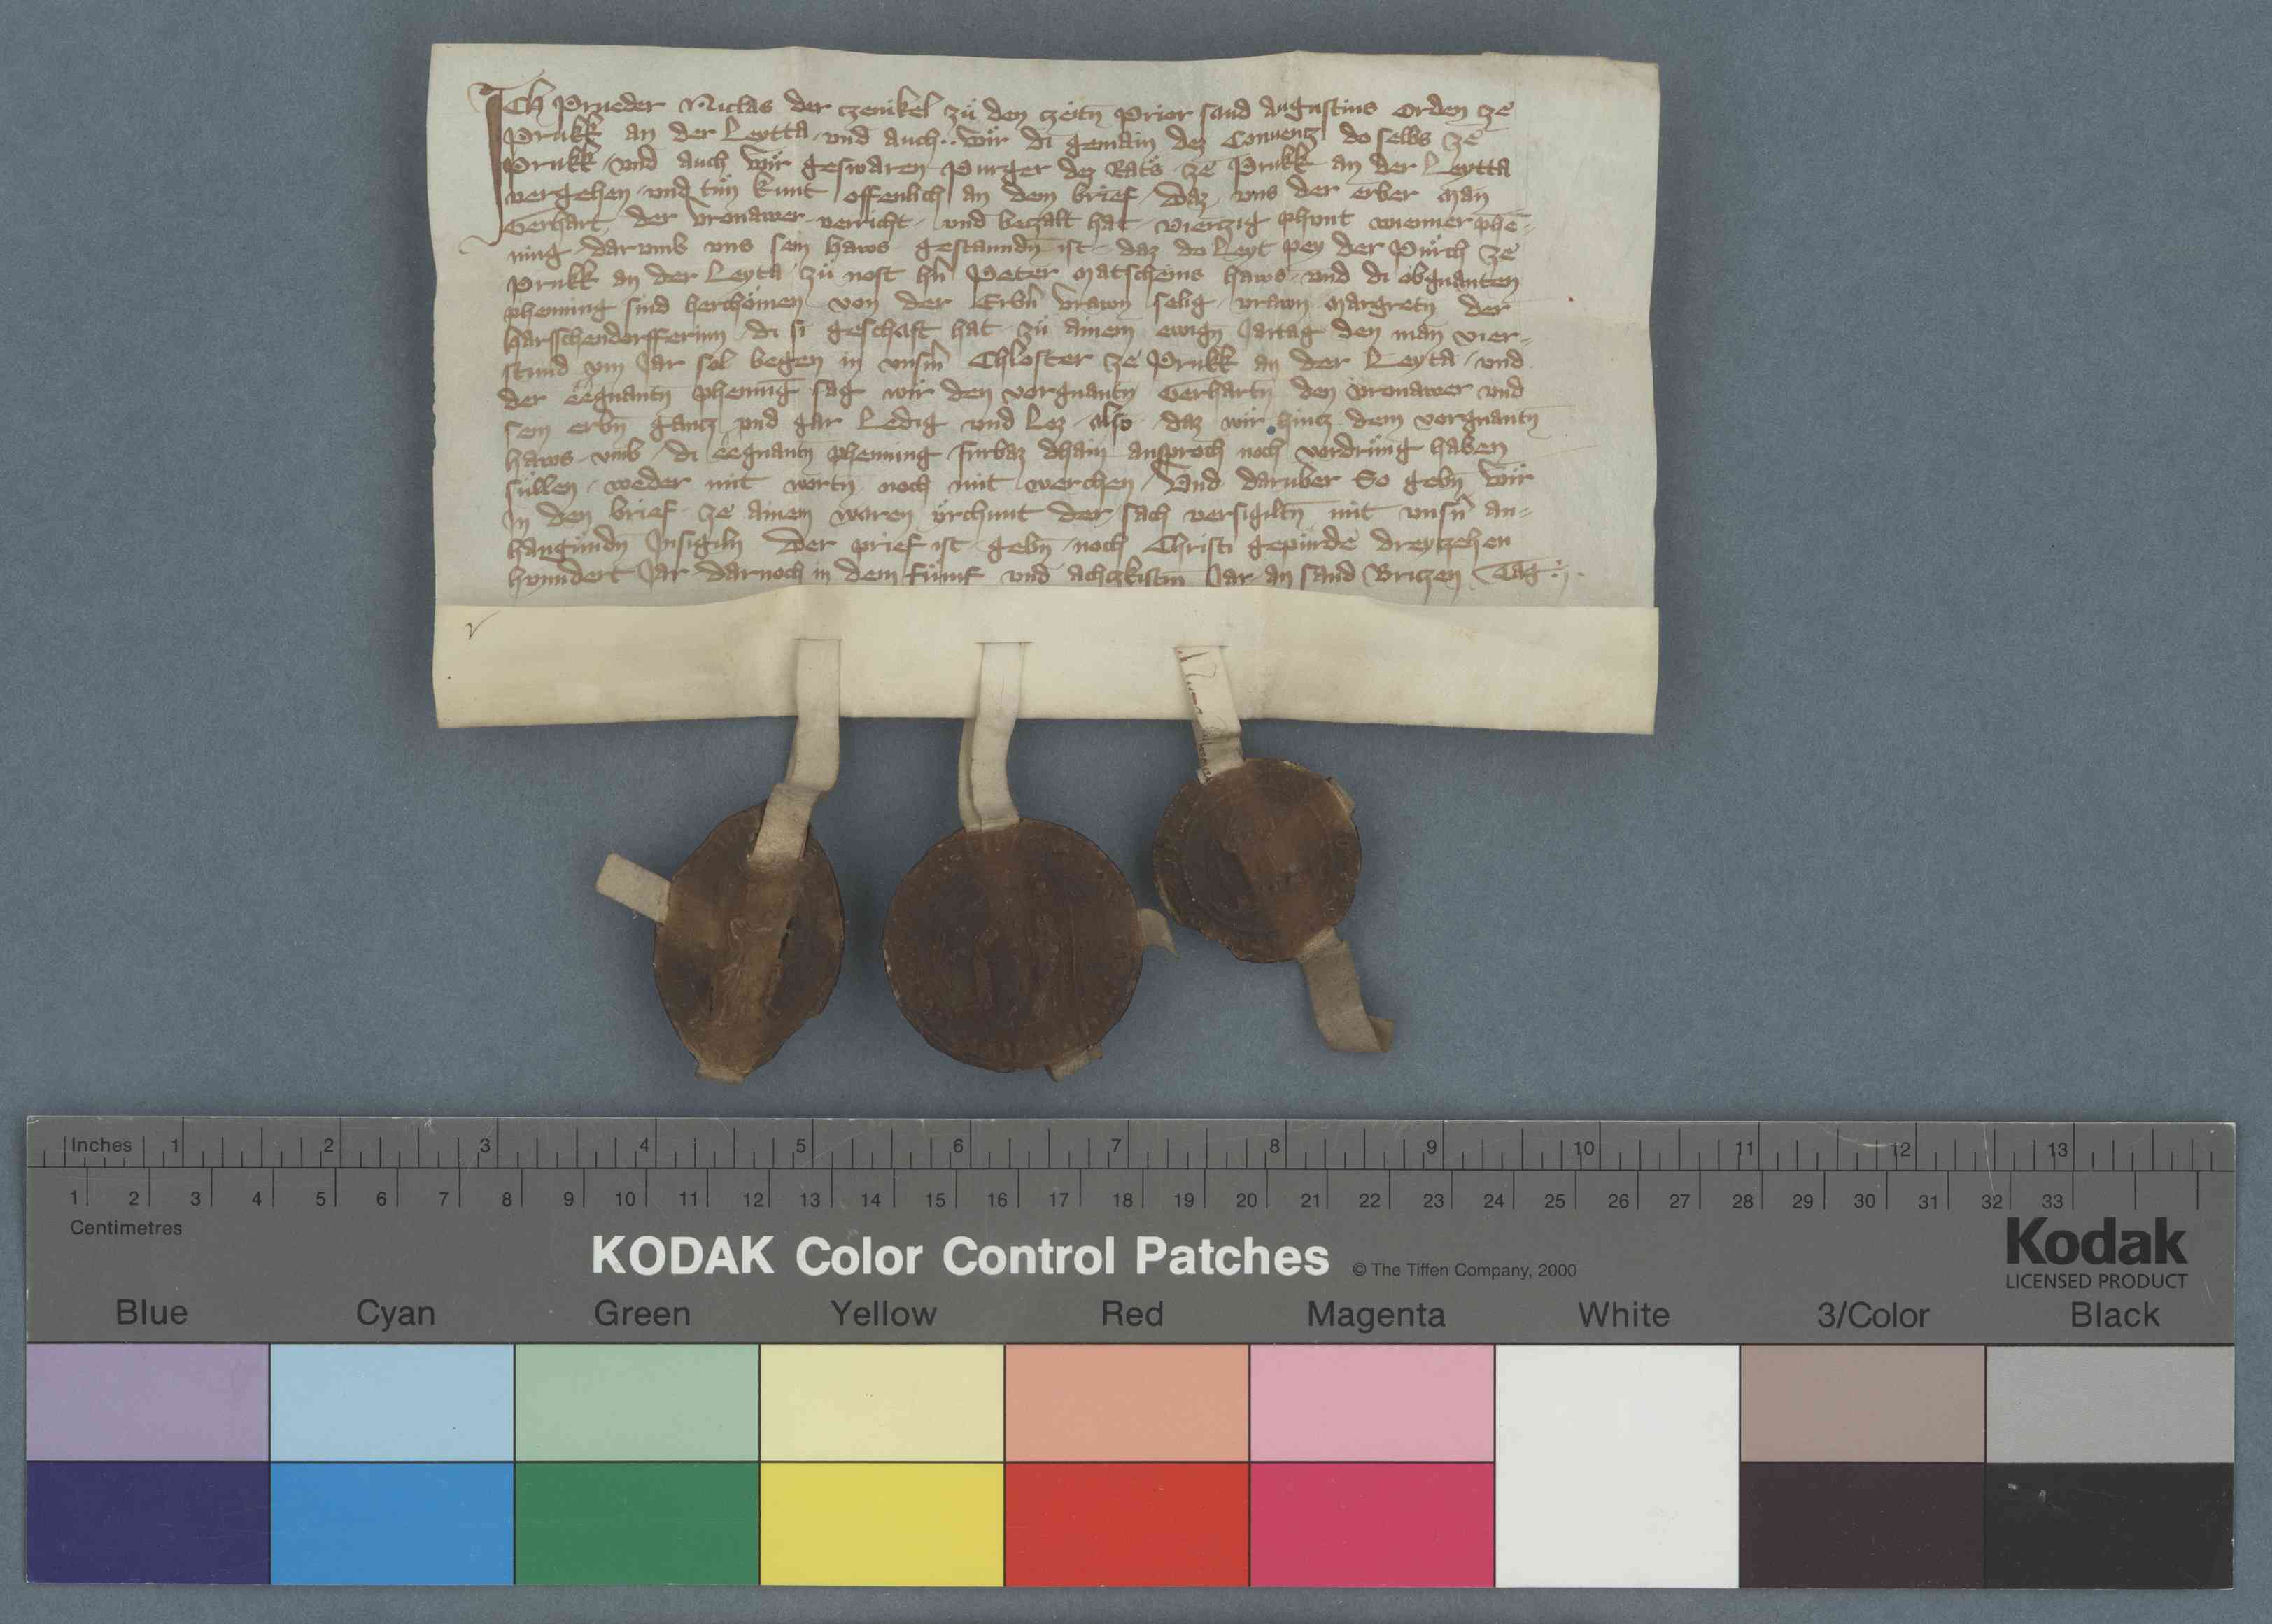 Ich Prueder Niclas der czenikel zu den czeitn Prior sand Augustins Orden ze
Prukk an der Leytta und auch .. wir di gemain dez Conuentz do selbs ze
Prukk und auch wir geswaren Purger dez Rats ze Prukk an der Leytta
vergehen und tun kunt offenlich an dem brief daz uns der erber man
Gerhart der vronawer verricht und beczalt hat vierczig phunt wienner phe=
ning darumb uns sein haws gestanndn ist daz do leyt pey der Purch ze
Prukk an der Leyta zu nost hn Peter Matscheins haws und di obgnanten
phenning sind herchomen von der Erbn vrawn selig vrawn Margretn der
Harsschendorfferinn di si geschaft hat zu ainem ewign Jartag den man vier=
stund ym Jar sol begen in unsm Chloster ze Prukk an der Leyta und
der eegnantn phening sag wir den vorgnantn Gerhartn den vronawer und
sein erbn gantz und gar ledig und loz also daz wir hintz dem vorgnantn
haws umb di eegnantn phenning furbaz dhain ansproch noch vordrung haben
sullen weder mit wortn noch mit werchen Und daruber So gebn wir
In den brief ze ainem waren urchunt der sach versigiltn mit unsn an=
hangundn Insigiln Der prief ist gebn noch Christi gepurde dreytzehen
hunndert Jar darnoch in dem fumf und achczkistm Jar an sand Briczen Tag
Inches 1 2 3 4 5 6 7 8 9 10 11 12 13
1 2 3 4 5 6 7 8 9 10 11 12 13 14 15 16 17 18 19 20 21 22 23 24 25 26 27 28 29 30 31 32 33
Centimetres
KODAK Color Control Patches © The Tiffen Company, 2000
Kodak
LICENSED PRODUCT
Blue Cyan Green Yellow Red Magenta White 3/Color Black